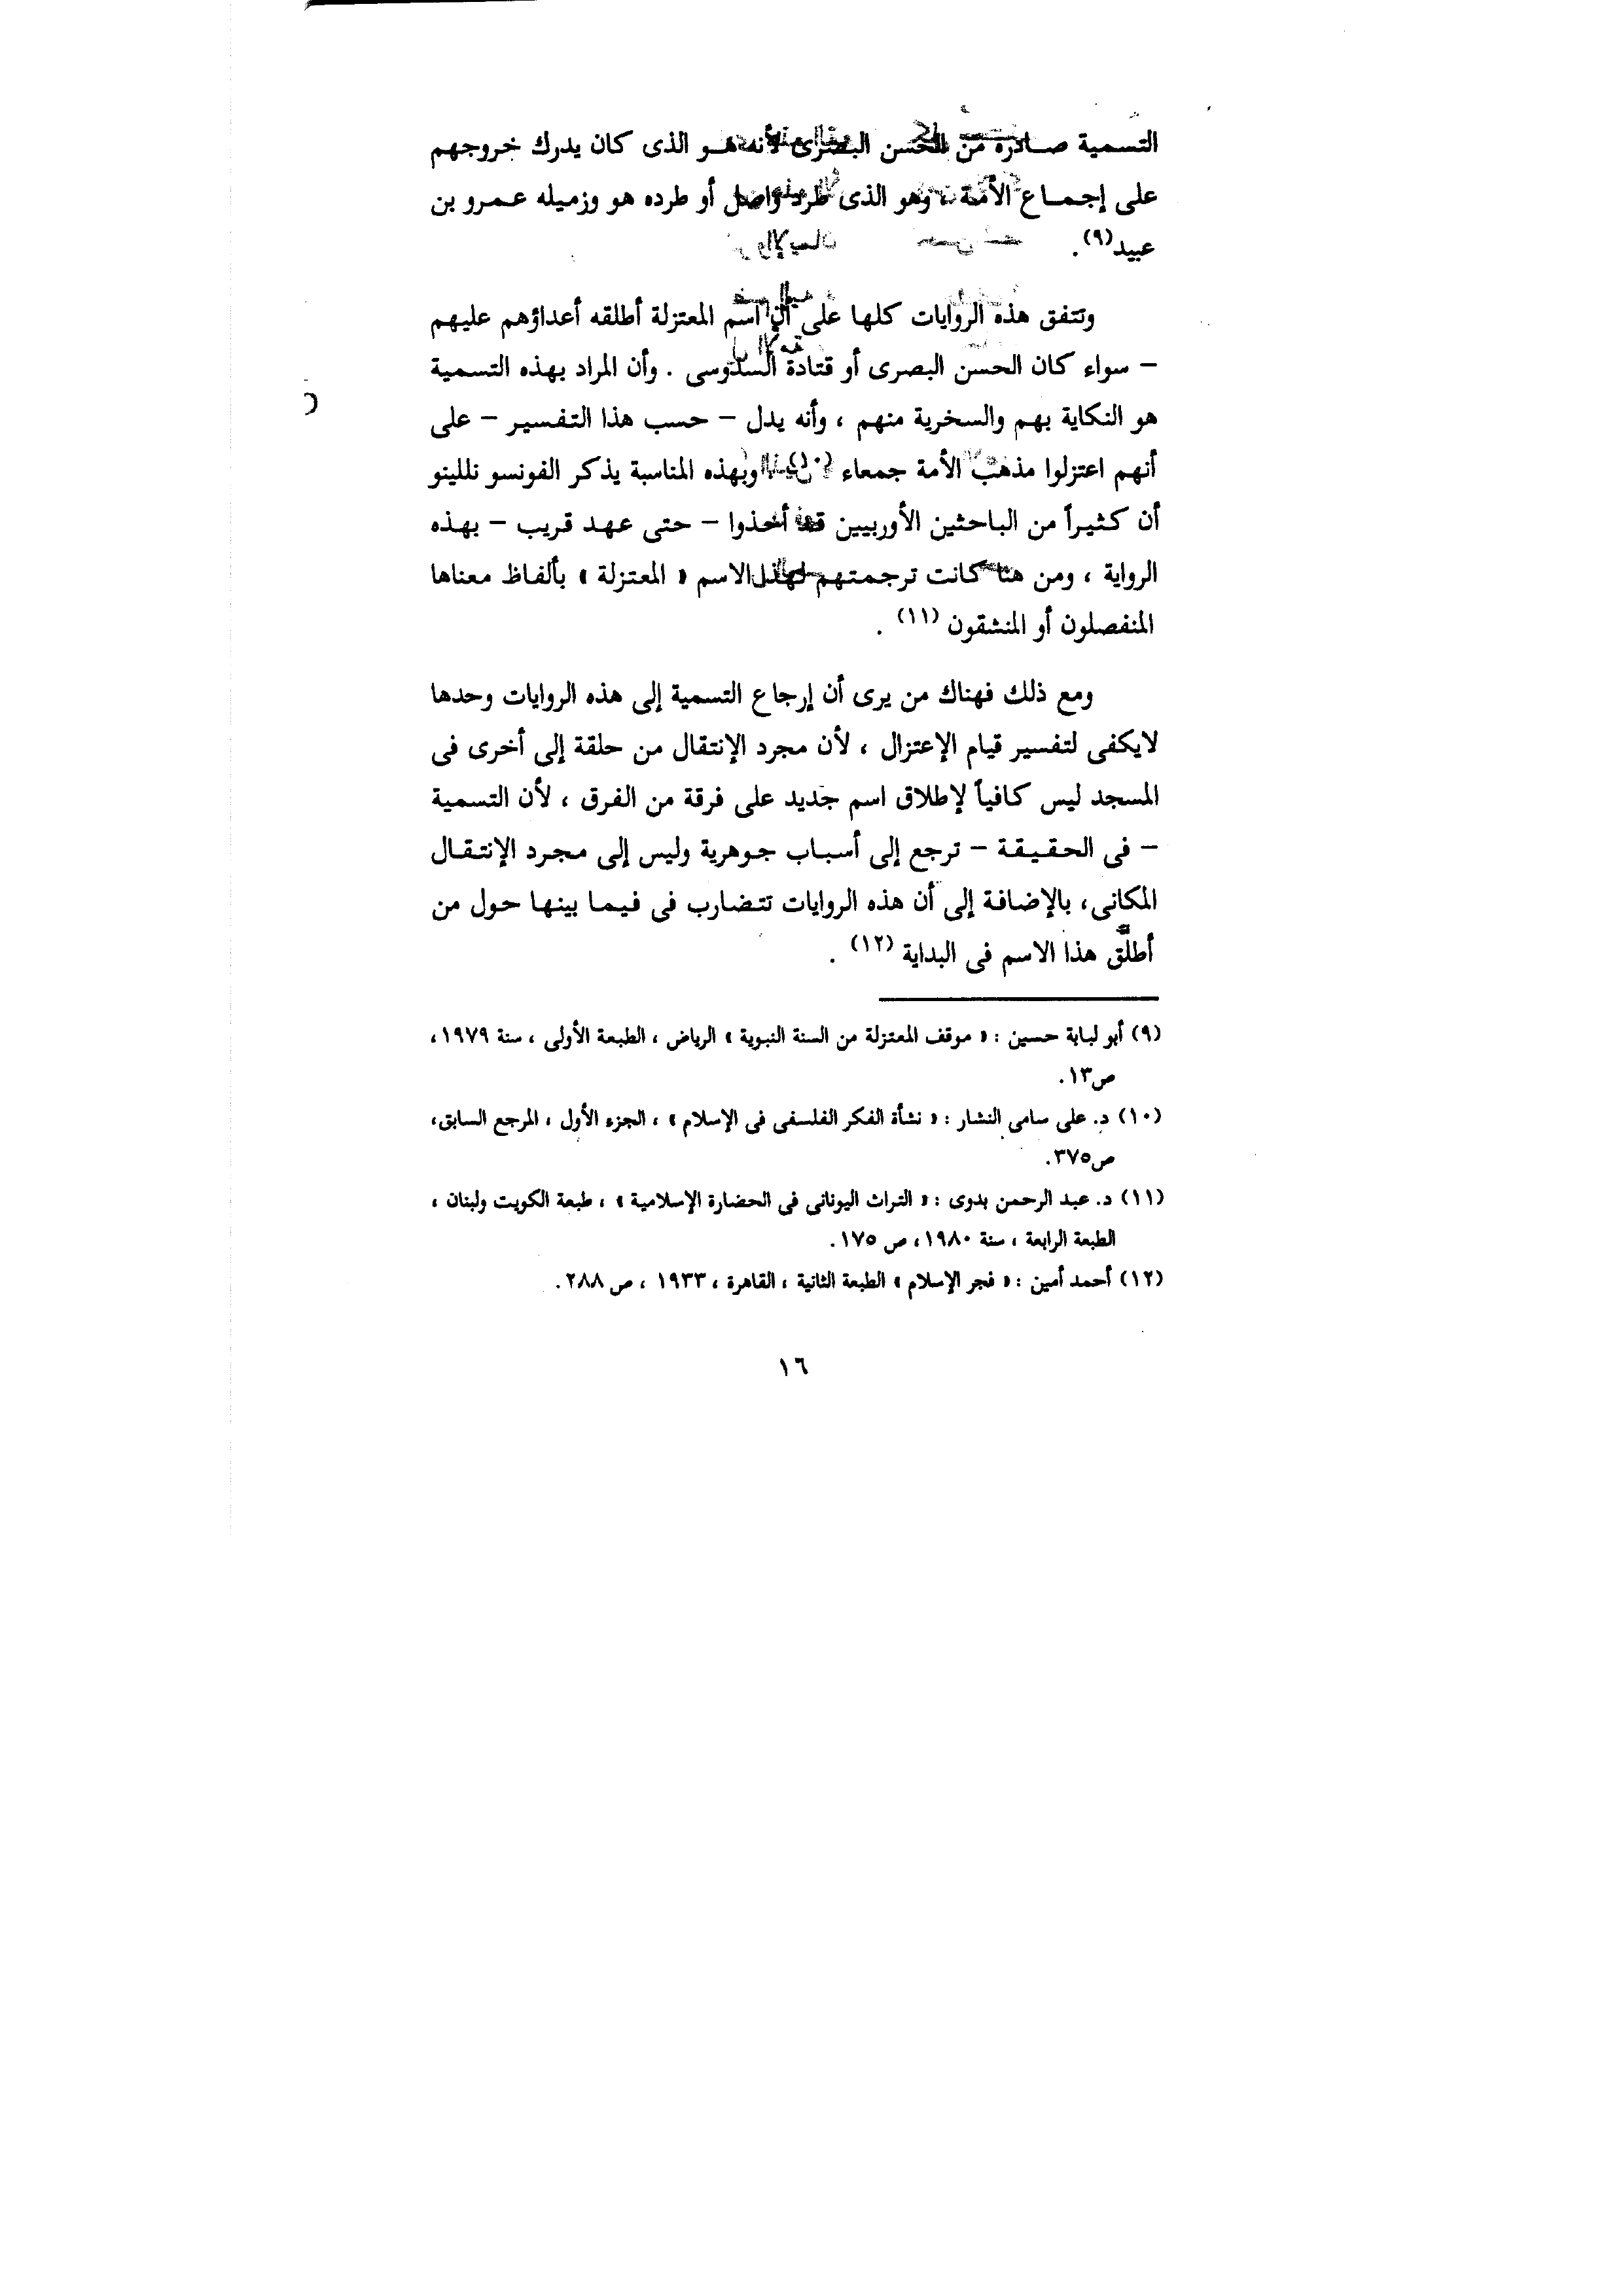 التسمية صادرة من الحسن البصرى لأنه هو الذى كان يدرك خروجهم
على إجماع الأمة ، وهو الذى طرد واصل أو طرده هو وزميله عمرو بن
عبيد(٩).
وتتفق هذه الروايات كلها على أن اسم المعتزلة أطلقه أعداؤهم عليهم
– سواء كان الحسن البصرى أو قتادة السدوسى . وأن المراد بهذه التسمية
هو النكاية بهم والسخرية منهم ، وأنه يدل – حسب هذا التفسير – على
أنهم اعتزلوا مذهب الأمة جمعاء (١٠) وبهذه المناسبة يذكر الفونسو نللينو
أن كثيراً من الباحثين الأوربيين قد أخذوا – حتى عهد قريب – بهذه
الرواية ، ومن هنا كانت ترجمتهم لهذا الاسم « المعتزلة » بألفاظ معناها
المنفصلون أو المنشقون (١١) .
ومع ذلك فهناك من يرى أن إرجاع التسمية إلى هذه الروايات وحدها
لايكفى لتفسير قيام الإعتزال ، لأن مجرد الإنتقال من حلقة إلى أخرى فى
المسجد ليس كافياً لإطلاق اسم جديد على فرقة من الفرق ، لأن التسمية
– فى الحقيقة – ترجع إلى أسباب جوهرية وليس إلى مجرد الإنتقال
المكانى، بالإضافة إلى أن هذه الروايات تتضارب فى فيما بينها حول من
أطلق هذا الاسم فى البداية (١٢) .
(٩) أبو لبابة حسين : « موقف المعتزلة من السنة النبوية » الرياض ، الطبعة الأولى ، سنة ١٩٧٩،
ص١٣.
(١٠) د. على سامى النشار : « نشأة الفكر الفلسفى فى الإسلام » ، الجزء الأول ، المرجع السابق،
ص٣٧٥.
(١١) د. عبد الرحمن بدوى : « التراث اليونانى فى الحضارة الإسلامية » ، طبعة الكويت ولبنان ،
الطبعة الرابعة ، سنة ١٩٨٠، ص ١٧٥.
(١٢) أحمد أمين : « فجر الإسلام » الطبعة الثانية ، القاهرة ، ١٩٣٣ ، ص ٢٨٨.
١٦